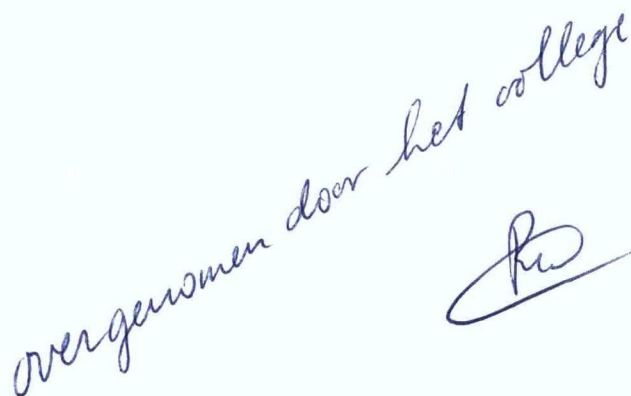 overgenomen door het college